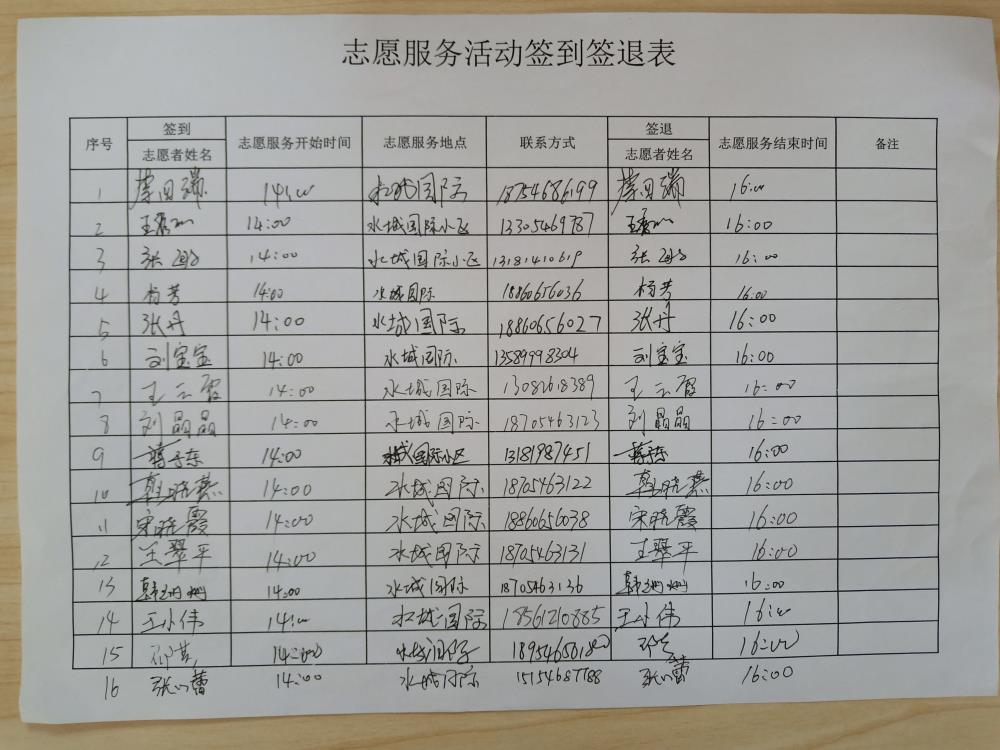 志愿服务活动签到签退表
序号 签到 志愿服务开始时间 志愿服务地点 联系方式 签退 志愿服务结束时间 备注
志愿者姓名 志愿者姓名
1 14:00 水城国际 18754686199 16:00
2 14:00 水城国际小区 13305469787 16:00
3 张 14:00 水城国际小区 13181410619 张 16:00
4 杨芳 14:00 水城国际 18860656036 杨芳 16:00
5 张丹 14:00 水城国际 18860656027 张丹 16:00
6 刘宝宝 14:00 水城国际 13589998304 刘宝宝 16:00
7 王云霞 14:00 水城国际 13082618389 王云霞 16:00
8 刘晶晶 14:00 水城国际 18705463123 刘晶晶 16:00
9 14:00 水城国际小区 13181987451 16:00
10 韩晓燕 14:00 水城国际 18705463122 韩晓燕 16:00
11 宋晓霞 14:00 水城国际 18860656038 宋晓霞 16:00
12 王翠平 14:00 水城国际 18705463131 王翠平 16:00
13 韩姗姗 14:00 水城国际 18705463136 韩姗姗 16:00
14 王小伟 14:00 水城国际 18561210885 王小伟 16:00
15 14:00 水城国际 16:00
16 张小蕾 14:00 水城国际 15154687788 张小蕾 16:00